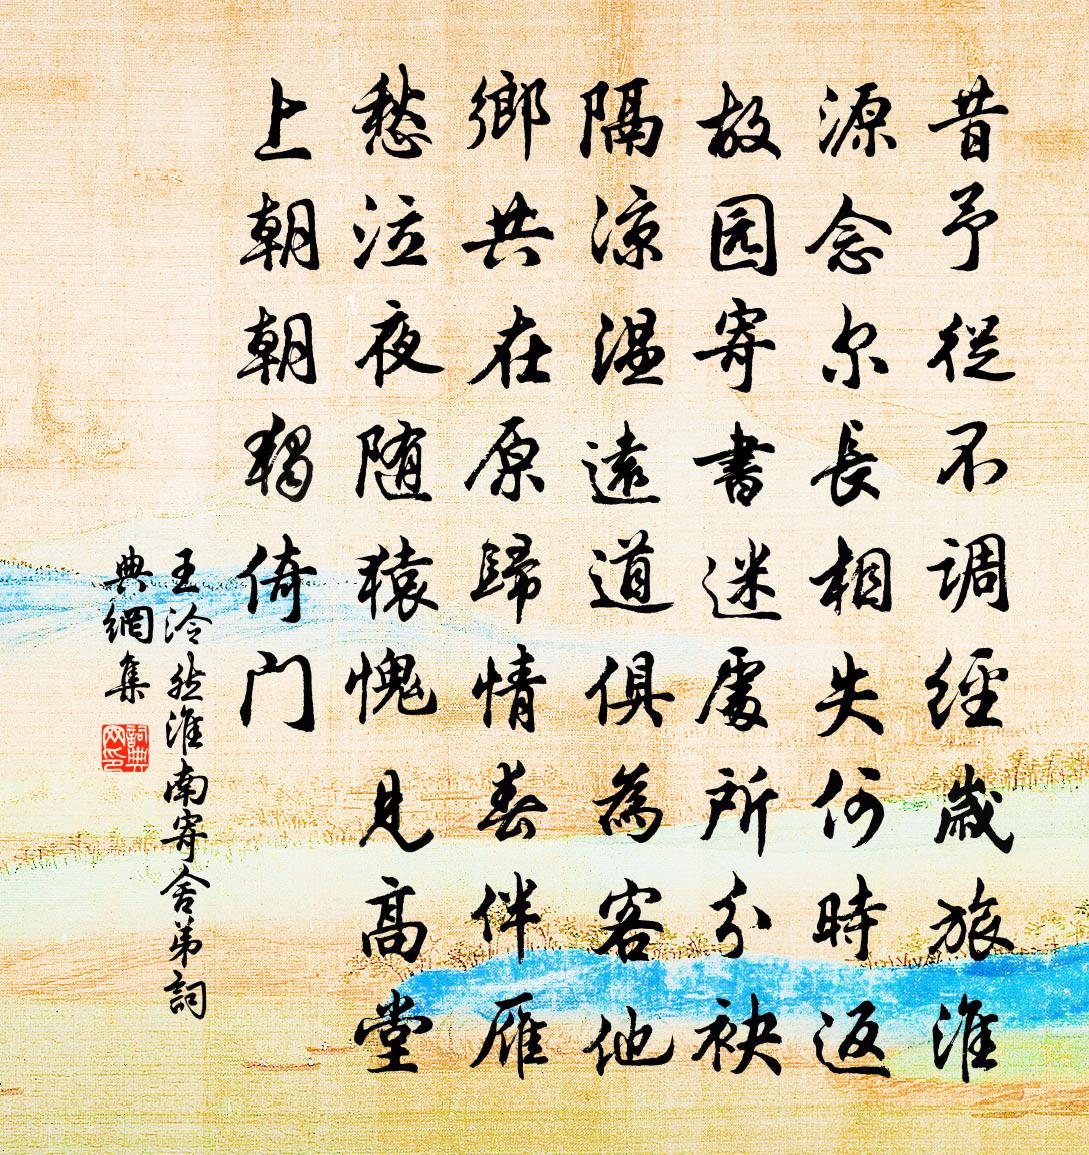 昔予従不调經歲旅淮
源念尔長相失何時返
故园寄書迷處所分袂
隔凉温遠道俱為客他
鄉共在原歸情春伴雁
愁泣夜随猿愧見高堂
上朝朝獨倚门
王泠然淮南寄舍弟詞
典網集
詞典网印